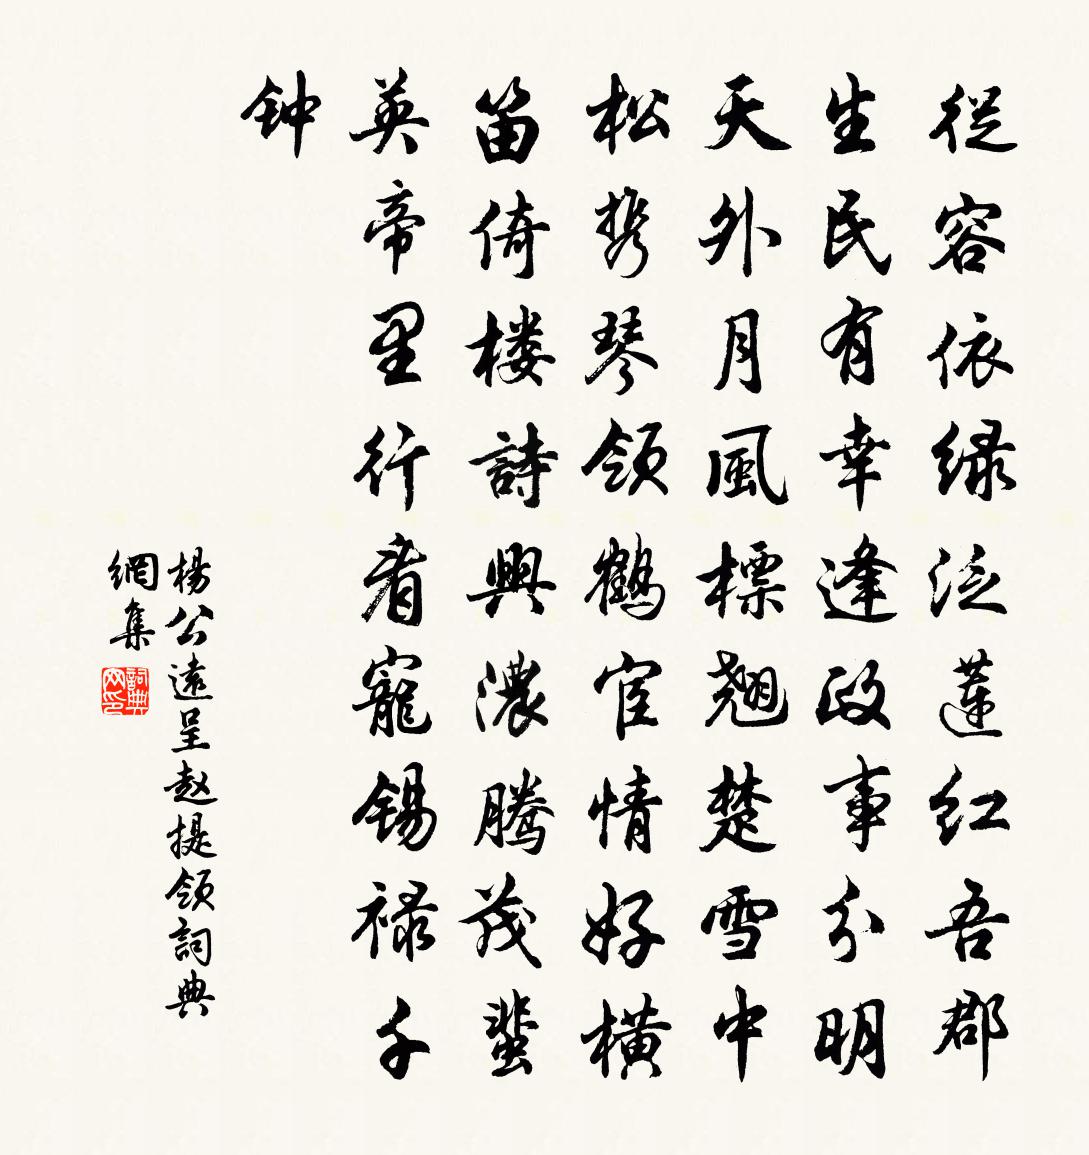 從容依绿泛蓮红吾郡
生民有幸逢政事分明
天外月風標翘楚雪中
松携琴領鶴宦情好橫
笛倚楼詩興濃騰茂蜚
英帝里行看寵錫禄千
钟
楊公遠呈赵提領詞典
網集
詞典网印